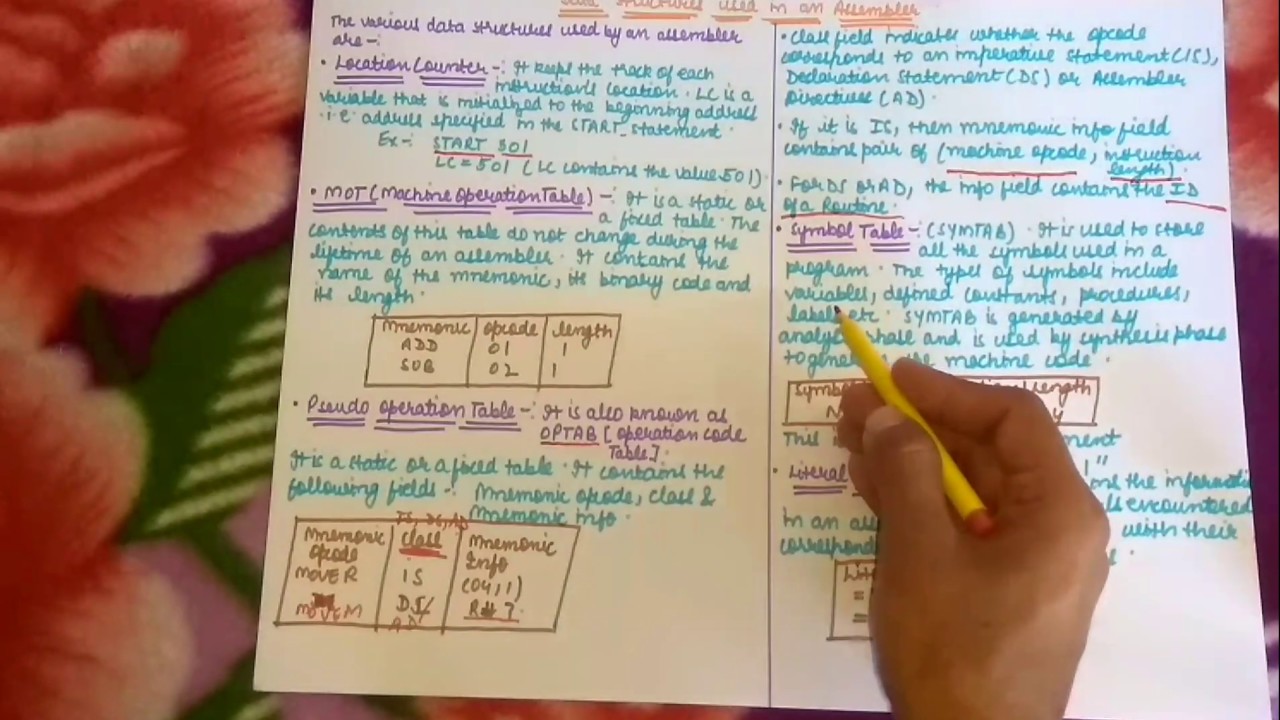 Data Structures used in an Assembler
The various data structures used by an assembler
are -:
• Location Counter -: It keeps the track of each
instruction's location. LC is a
variable that is initialized to the beginning address
i.e. address specified in the START statement.
Ex -: START 501
LC = 501 (LC contains the value 501)
• MOT (Machine Operation Table) -: It is a static or
a fixed table. The
contents of this table do not change during the
lifetime of an assembler. It contains the
name of the mnemonic, its binary code and
its length.
Mnemonic opcode length
ADD 01 1
SUB 02 1
• Pseudo operation Table -: It is also known as
OPTAB [operation code
Table].
It is a static or a fixed table. It contains the
following fields -: Mnemonic opcode, class &
Mnemonic info.
IS, DS, AD
Mnemonic opcode class Mnemonic Info
MOVER IS (04,1)
MOVEM DS/AD R#7
• Class field indicates whether the opcode
corresponds to an imperative statement (IS),
Declaration Statement (DS) or Assembler
Directive (AD).
• If it is IS, then mnemonic info field
contains pair of (machine opcode, instruction
length).
• For DS or AD, the info field contains the ID
of a Routine.
• Symbol Table -: (SYMTAB). It is used to store
all the symbols used in a
program. The types of symbols include
variables, defined constants, procedures,
labels etc. SYMTAB is generated by
phase and is used by synthesis phase
to the machine code.
Symbol length
N
This
• Literal the
encountered
in an with their